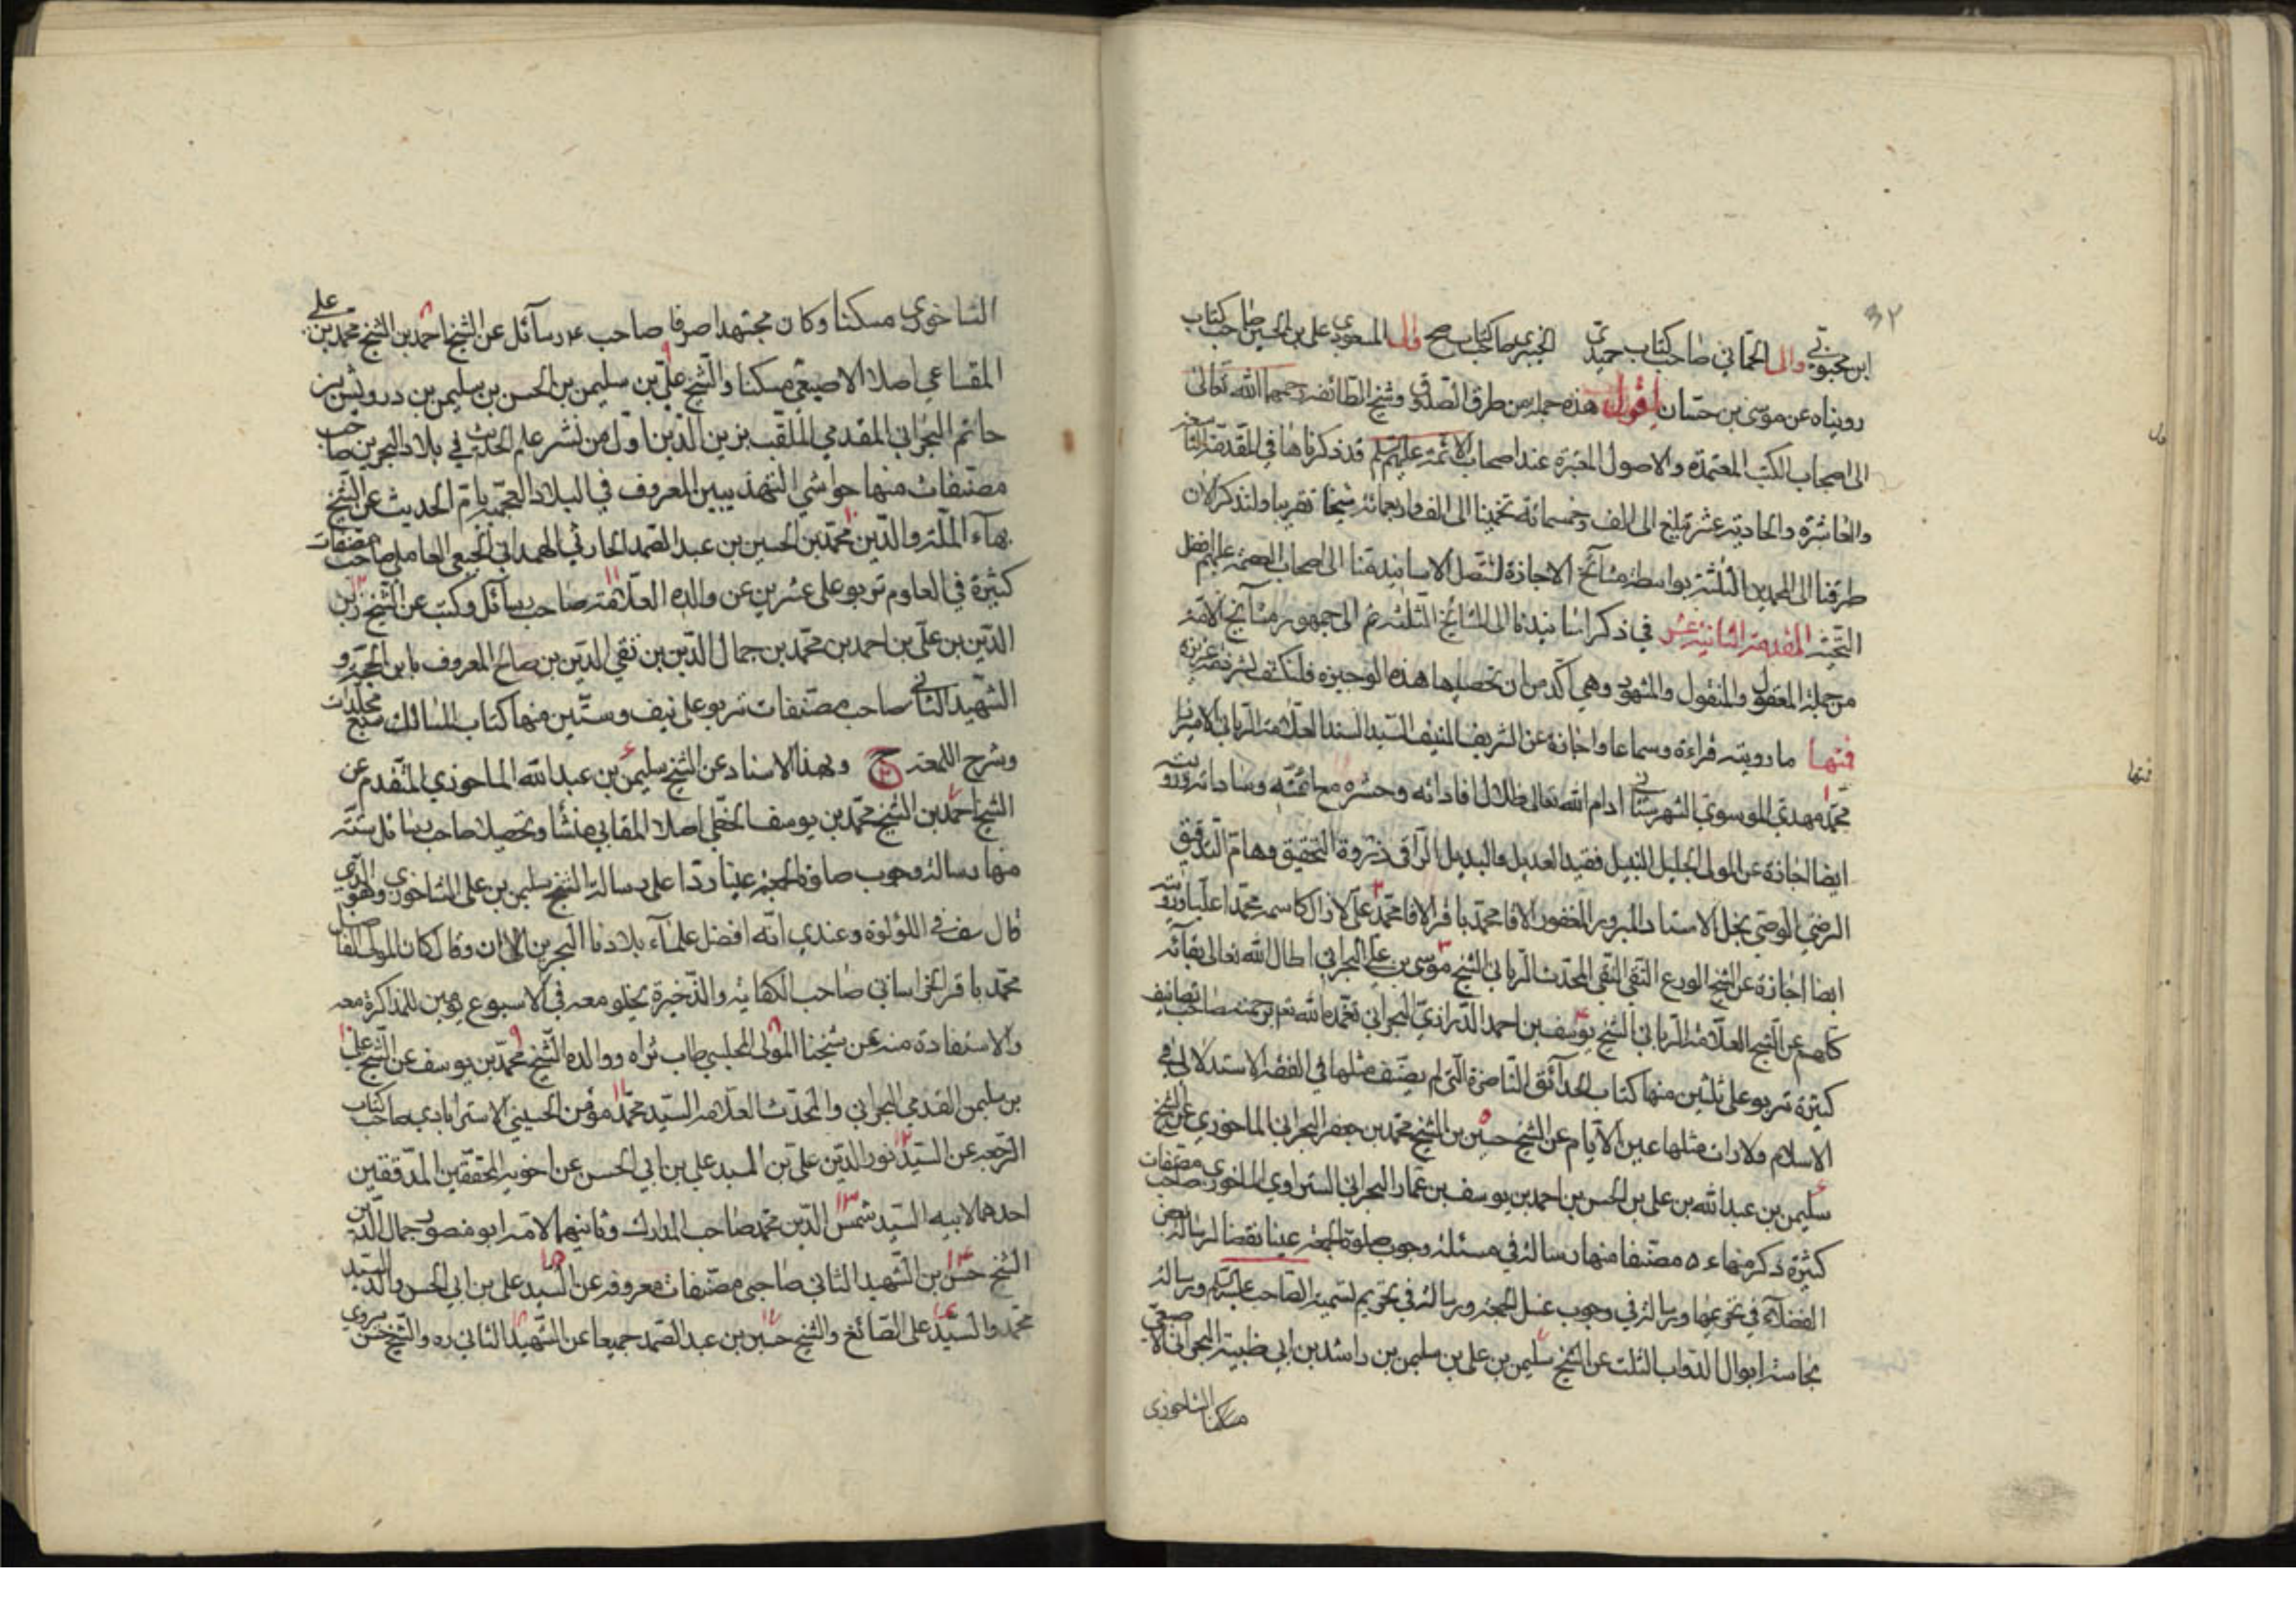 ٣٢
ابن محبوب والى الحماني صاحب كتاب حميدى الخيبرى صاحب كتاب صح والى المسعودى على بن الحسين صاحب كتاب
رويناه عن موسى بن حسان اقول هذه جملة من طرق الصدوق وشيخ الطائفة رحمهما الله تعالى
الى اصحاب الكتب المعتمدة والاصول المعتبرة عند اصحاب الائمة عليهم السلم قد ذكرناها فى المقدمة التاسعة
والعاشرة والحادية عشر تبلغ الى الف وخمسمائة تخمينا الى الف واربعمائة شيخا تقريبا ولنذكر الان
طرقنا الى المحمدين الثلثة بواسطة مشائخ الاجازة لتتصل الاسانيد منا الى اصحاب العصمة عليهم افضل
التحية المقدمة الثانية عشر في ذكر اسانيدنا الى المشائخ الثلثة ثم الى جمهور مشائخ الامة
من حملة المعقول والمنقول والمشهور وهي آكد من ان تحصيلها هذه الوجيزه فلنكتف بشرذمة عزيزة
فمنها ما رويته قراءة وسماعا واجازة عن الشريف المنيف السيد السند العلامة الربانى الاميرزا
محمد مهدي الموسوي الشهرستاني ادام الله تعالى ظلال افاداته وحشره مع ائمته وساداته ورويته
ايضا اجازة عن المولى الجليل النبيل فقيد العديل والبديل الراقى ذروة التحقيق وهام التدقيق
الرضي الوصى نجل الاستاد المبرور المغفور الاقا محمد باقر الاقا محمد على لازال كاسمه محمدا عليا ورويته
ايضا اجازة عن الشيخ الورع التقى النقى المحدث الربانى الشيخ موسى بن على البحرانى اطال الله تعالى بقائه
كلهم عن الشيخ العلامة الربانى الشيخ يوسف بن احمد الدرازي البحرانى تغمده الله تعم برحمته صاحب تصانيف
كثيرة تربو على ثلثين منها كتاب الحدائق الناضرة التى لم يصنف مثلها في الفقه الاستدلالى فى
الاسلام ولا رات مثلها عين الايام عن الشيخ حسين بن الشيخ محمد بن جعفر البحرانى الماحوزي عن الشيخ
سليمن بن عبد الله بن على بن الحسن بن احمد بن يوسف بن عمار البحرانى الستراوي الماحوزى صاحب مصنفات
كثيرة ذكر منها ٥٤ مصنفا منها رسالة في مسئلة وجوب صلوة الجمعة عينا نقضا لرسالة بعض
الفضلاء في تحريمها ورسالة في وجوب غسل الجمعة ورسالة في تحريم تسمية الصاحب عليه السلم ورسالة
نجاسة ابوال الدواب الثلث عن الشيخ سليمن بن على بن سليمن بن راشد بن ابي ظبية البحرانى الاصبعى
مسكنا الشاخورى
الشاخورى مسكنا وكان مجتهدا صرفا صاحب ٤ رسائل عن الشيخ احمد بن الشيخ محمد بن على
المقساعي اصلا الاصبعي مسكنا والشيخ على بن سليمن بن الحسن بن سليمن بن درويش بن
حاتم البحرانى المقدمي الملقب بزين الدين اول من نشر علم الحديث في بلاد البحرين صاحب
مصنفات منها حواشي التهذيبين المعروف في البلاد العجمية بام الحديث عن الشيخ
بهاء الملة والدين محمد بن الحسين بن عبد الصمد الحارثي الهمدانى الجبعى العاملى صاحب مصنفات
كثيرة في العلوم تربو على عشرين عن والده العلامة صاحب رسائل وكتب عن الشيخ زين
الدين بن على بن احمد بن محمد بن جمال الدين بن تقي الدين بن صالح المعروف بابن الحجة و
الشهيد الثانى صاحب مصنفات تربو على نيف وستين منها كتاب المسالك سبع مجلدات
وشرح اللمعة ح وبهذا الاسناد عن الشيخ سليمن بن عبد الله الماحوزي المتقدم عن
الشيخ احمد بن الشيخ محمد بن يوسف الخطى اصلا المقابي منشأ وتحصيلا صاحب رسائل ستة
منها رسالة وجوب صلوة الجمعة عينا ردا على رسالة الشيخ سليمن بن على الشاخورى وهو الذى
قال سف فى اللؤلؤة وعندي انه افضل علماء بلادنا البحرين الى الان وقال كان المولى الفاضل
محمد باقر الخراسانى صاحب الكفاية والذخيرة يخلو معه في الاسبوع يومين للمذاكرة معه
والاستفادة منه عن شيخنا المولى المجلسي طاب ثراه ووالده الشيخ محمد بن يوسف عن الشيخ على
بن سليمن القدمي البحرانى والمحدث العلامة السيد محمد مؤمن الحسينى الاسترابادي صاحب كتاب
الرجعة عن السيد نور الدين على بن السيد على بن ابي الحسن عن اخويه المحققين المدققين
احدهما لابيه السيد شمس الدين محمد صاحب المدارك وثانيهما لامه ابو منصور جمال الدين
الشيخ حسن بن الشهيد الثانى صاحبى مصنفات معروفة عن السيد على بن ابي الحسن والد السيد
محمد والسيد على الصائغ والشيخ حسين بن عبد الصمد جميعا عن الشهيد الثانى ره والشيخ حسن يروي